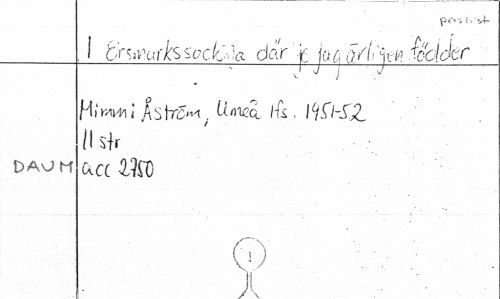 pris list
I Ersmarkssockna där je jag ärligen födder
Mimmi Åström, Umeå lfs. 1951-52
11 str
DAUM acc 2750
1